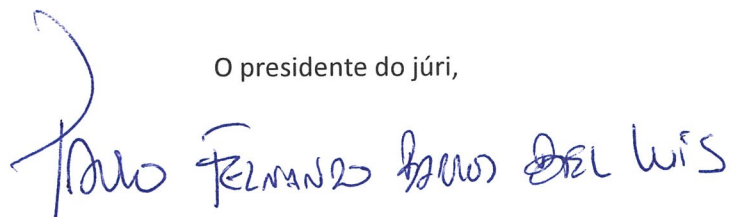 O presidente do júri,
Paulo Fernando Barros Abel Luis